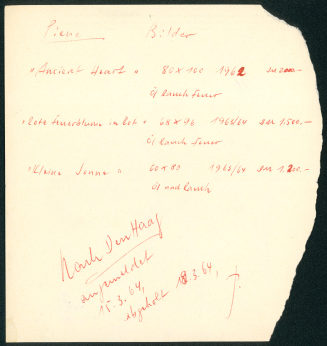 Piene Bilder
"Ancient Heart" 80 x 100 1962 DM 2000.-
Öl Rauch Feuer
"rote Feuerblume in rot" 68 x 96 1963/64 DM 1.500,-
Öl Rauch Feuer
"Kleine Sonne" 60 x 80 1963/64 DM 1.200,-
Öl und Rauch
Nach Den Haag
angemeldet
15.3.64,
abgeholt 18.3.64,